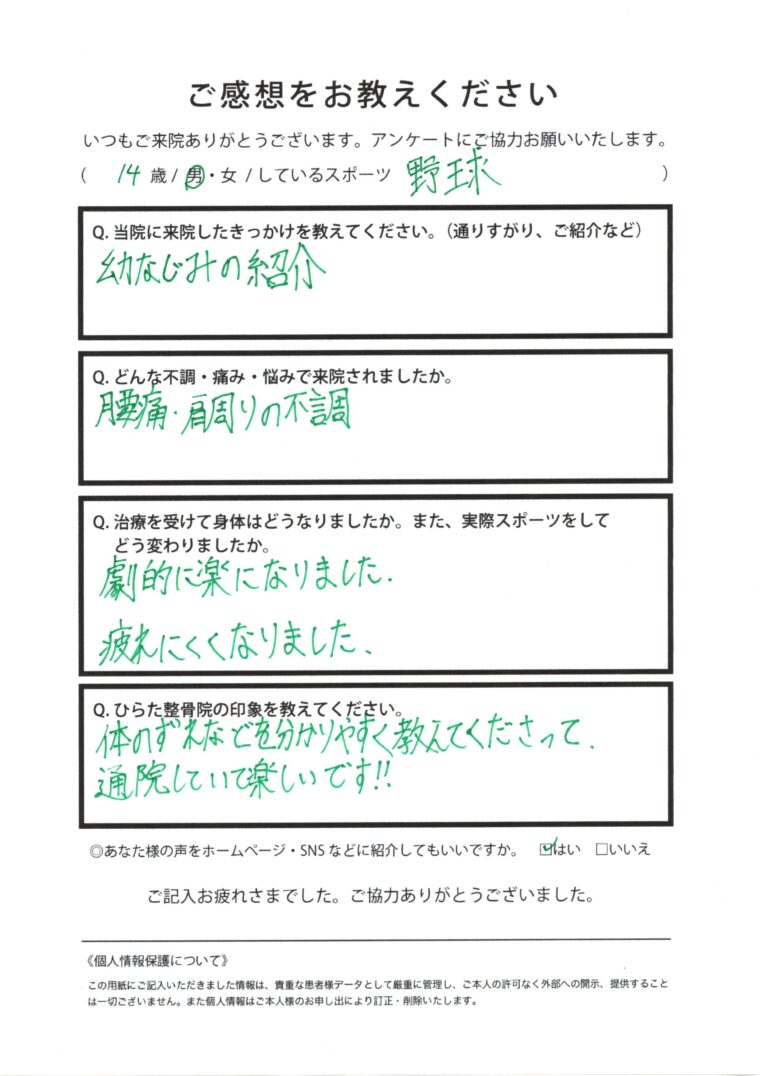 ご感想をお教えください
いつもご来院ありがとうございます。アンケートにご協力お願いいたします。
( 14 歳 / 男・女 / しているスポーツ 野球 )
Q. 当院に来院したきっかけを教えてください。（通りすがり、ご紹介など）
幼なじみの紹介
Q. どんな不調・痛み・悩みで来院されましたか。
腰痛・肩周りの不調
Q. 治療を受けて身体はどうなりましたか。また、実際スポーツをして
どう変わりましたか。
劇的に楽になりました.
疲れにくくなりました、
Q. ひらた整骨院の印象を教えてください。
体のずれなどを分かりやすく教えてくださって、
通院していて楽しいです!!
◎あなた様の声をホームページ・SNS などに紹介してもいいですか。 ☑はい □いいえ
ご記入お疲れさまでした。ご協力ありがとうございました。
《個人情報保護について》
この用紙にご記入いただきました情報は、貴重な患者様データとして厳重に管理し、ご本人の許可なく外部への開示、提供すること
は一切ございません。また個人情報はご本人様のお申し出により訂正・削除いたします。